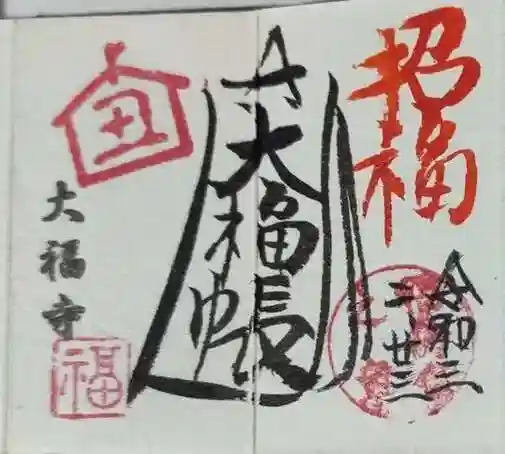 招福
令和三
二、廿三
大福帳
丑
大福寺
福